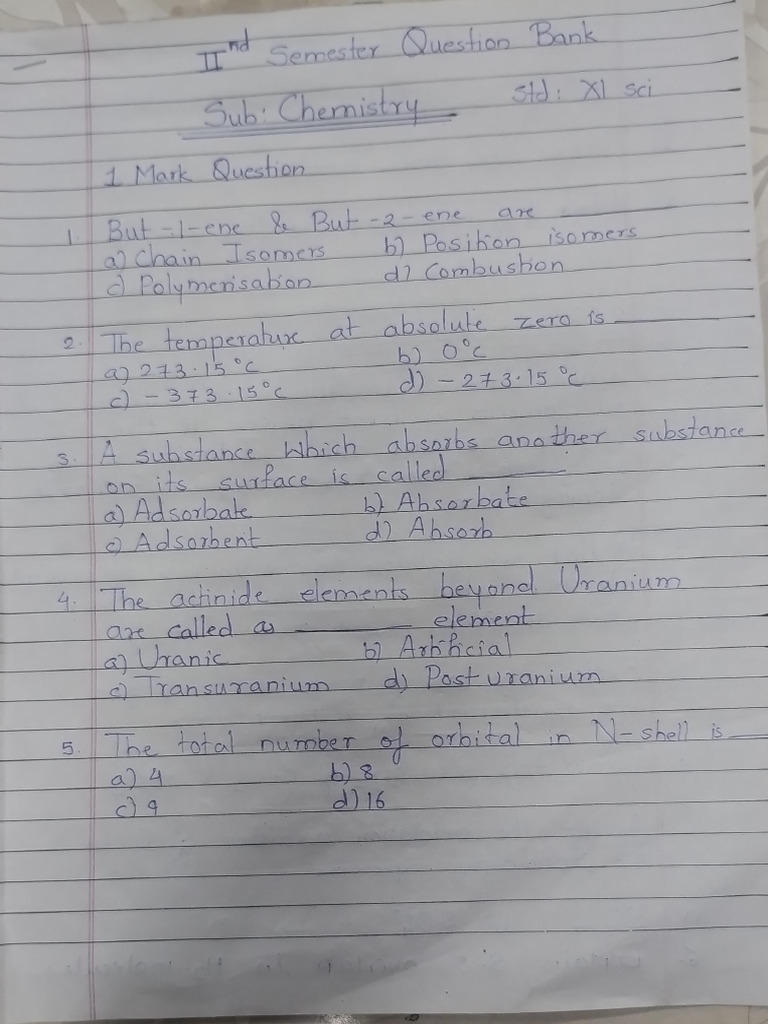 IInd Semester Question Bank
Sub: Chemistry Std: XI sci
1 Mark Question
1. But-1-ene & But-2-ene are ______
a) Chain Isomers b) Position isomers
c) Polymerisation d) Combustion
2. The temperature at absolute zero is ______
a) 273.15°C b) 0°C
c) -373.15°C d) -273.15°C
3. A substance which absorbs another substance
on its surface is called ______
a) Adsorbate b) Absorbate
c) Adsorbent d) Absorb
4. The actinide elements beyond Uranium
are called as ______ element
a) Uranic b) Artificial
c) Transuranium d) Post uranium
5. The total number of orbital in N-shell is ______
a) 4 b) 8
c) 9 d) 16